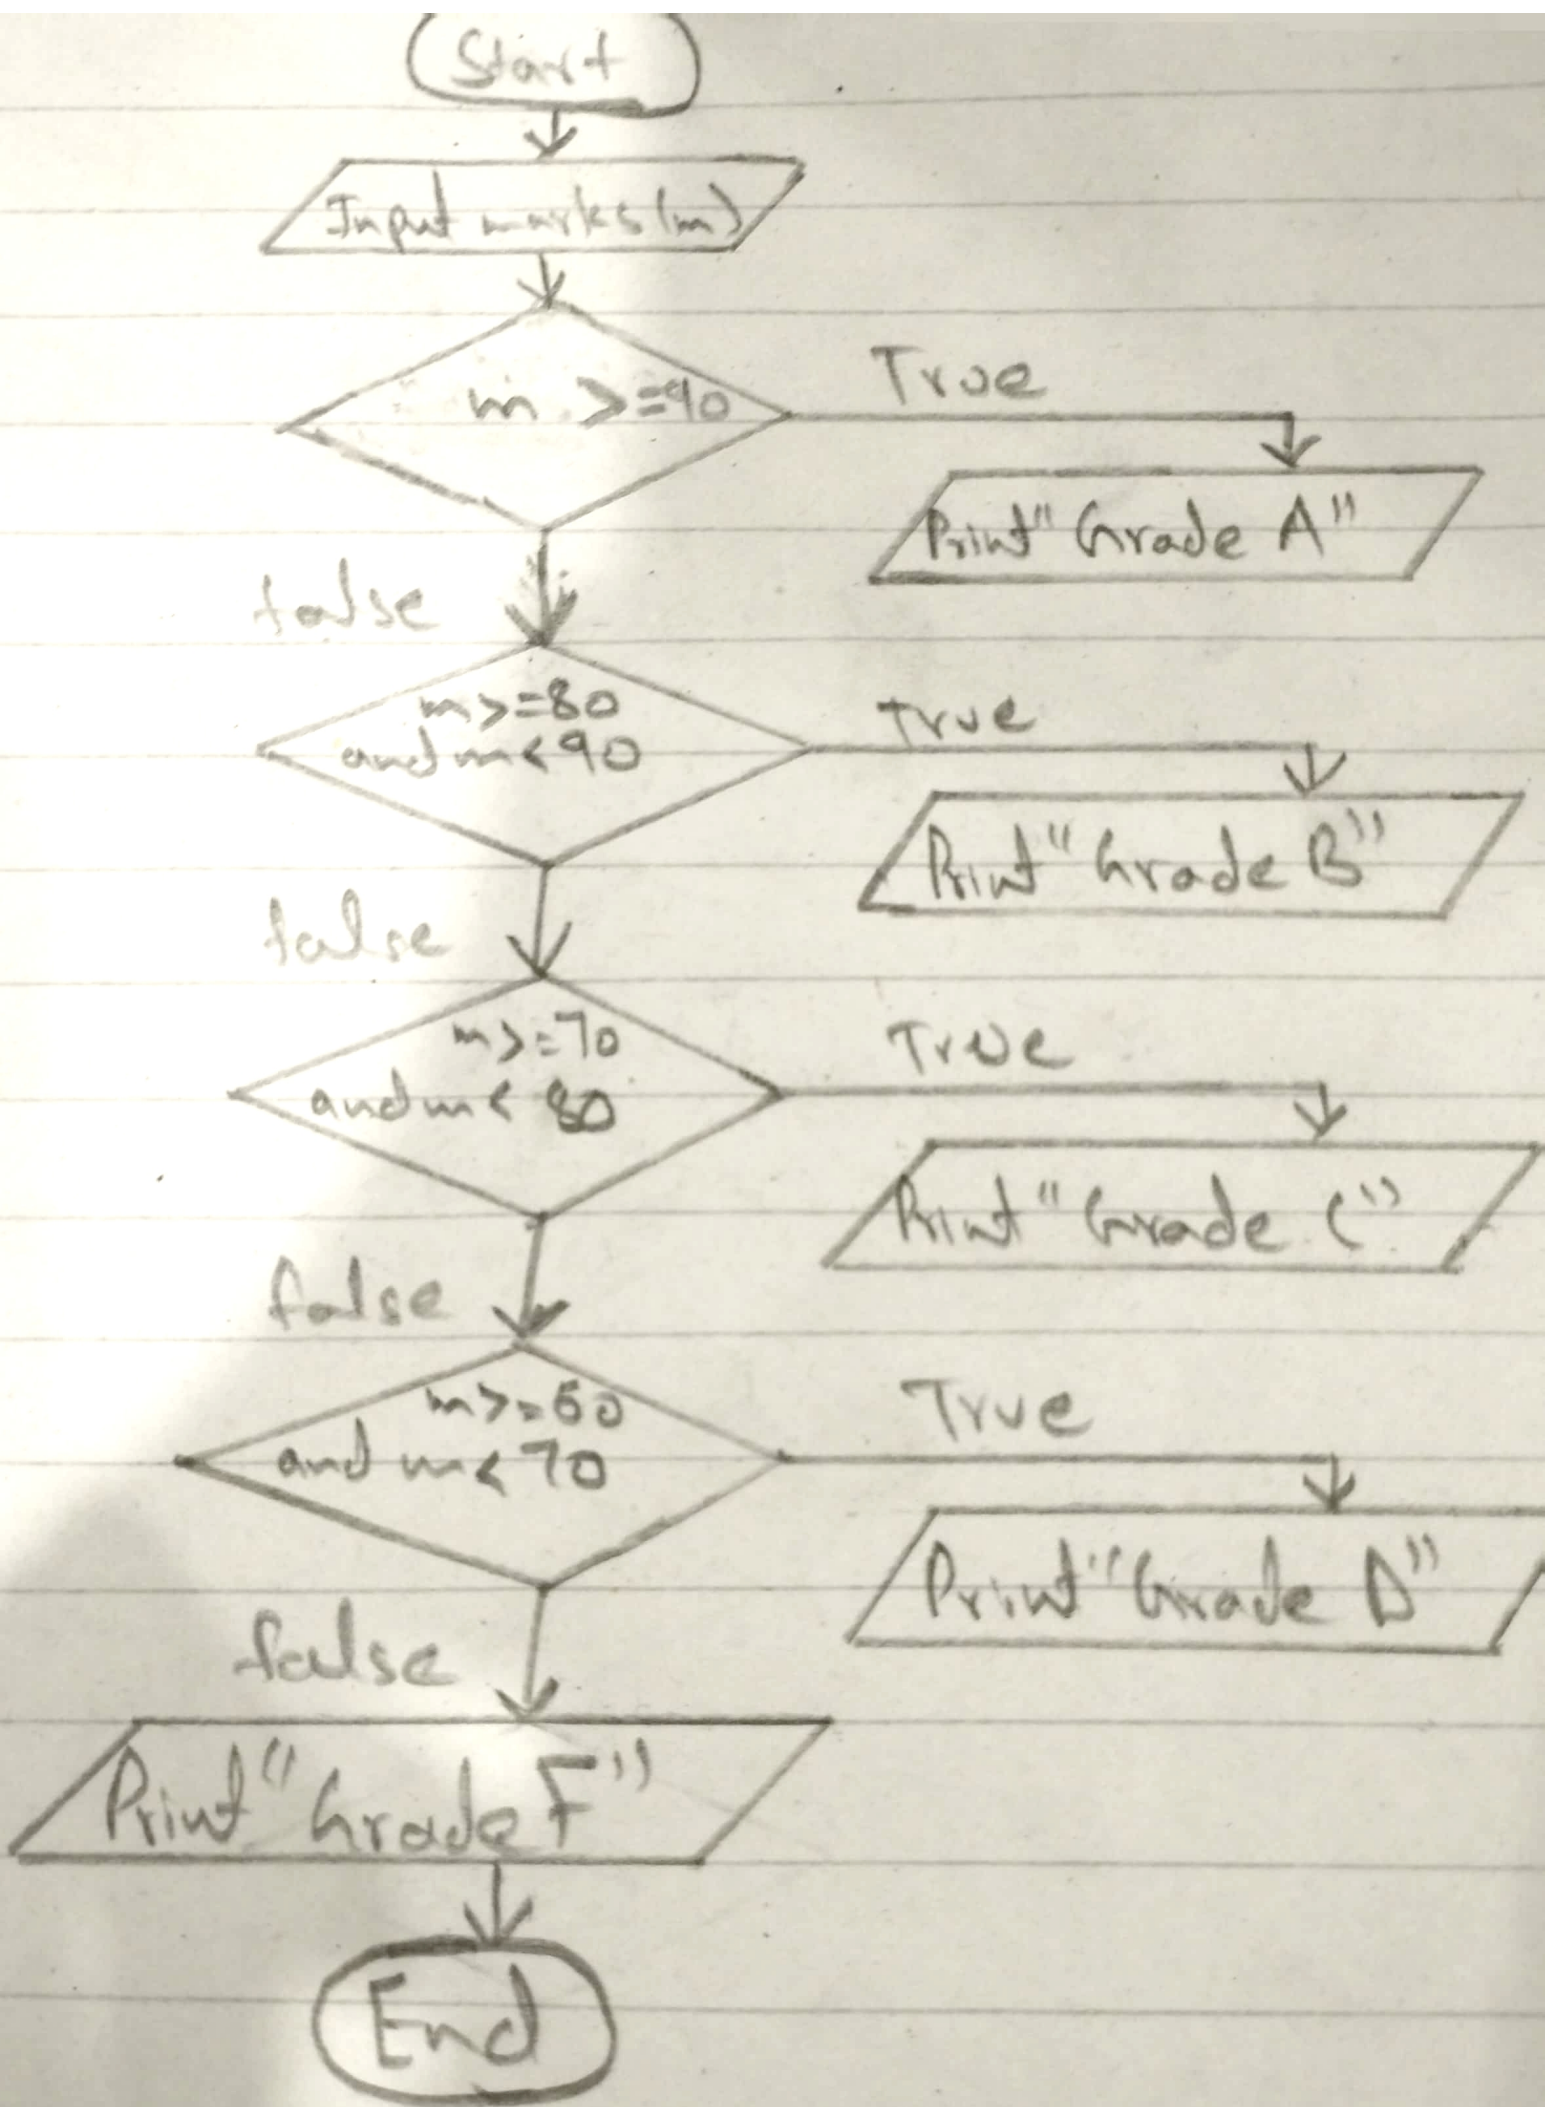 Start
Input marks (m)
m >=90
True
Print "Grade A"
false
m>=80
and m<90
True
Print "Grade B"
false
m>=70
and m< 80
True
Print "Grade C"
false
m>=60
and m<70
True
Print "Grade D"
false
Print "Grade F"
End